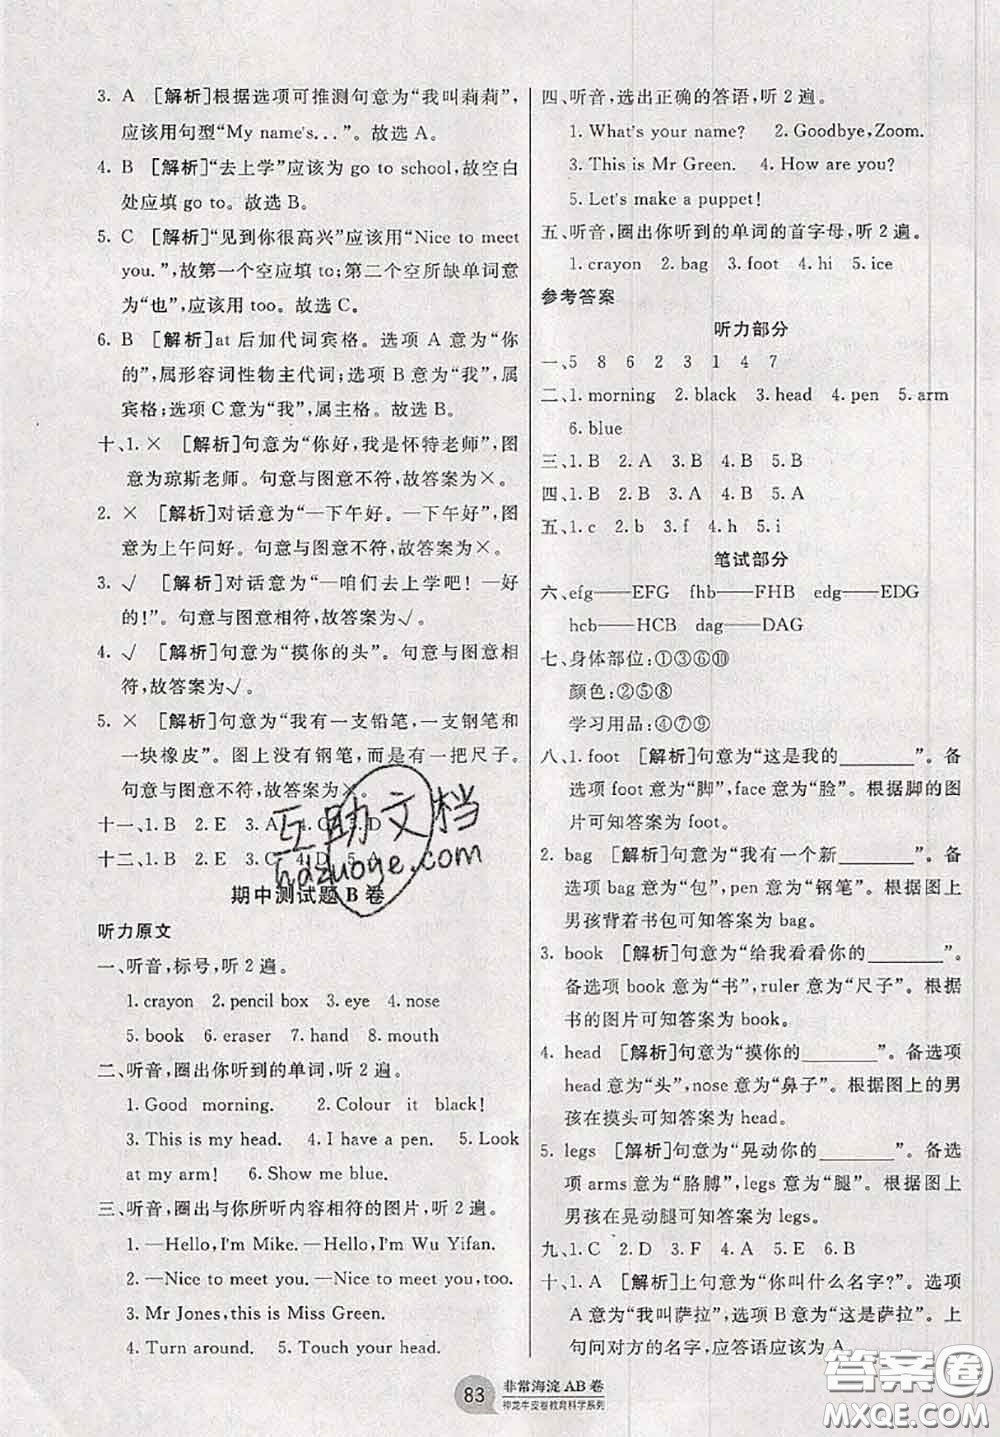 3. A [解析]根据选项可推测句意为“我叫莉莉”,
应该用句型“My name's...”。故选 A。
4. B [解析]“去上学”应该为 go to school,故空白
处应填 go to。故选 B。
5. C [解析]“见到你很高兴”应该用“Nice to meet
you.”,故第一个空应填 to;第二个空所缺单词意
为“也”,应该用 too。故选 C。
6. B [解析]at 后加代词宾格。选项 A 意为“你
的”,属形容词性物主代词;选项 B 意为“我”,属
宾格;选项 C 意为“我”,属主格。故选 B。
十、1. × [解析]句意为“你好,我是怀特老师”,图
意为琼斯老师。句意与图意不符,故答案为×。
2. × [解析]对话意为“—下午好。—下午好”,
图意为上午问好。句意与图意不符,故答案为×。
3. √ [解析]对话意为“—咱们去上学吧！—好
的!”。句意与图意相符,故答案为√。
4. √ [解析]句意为“摸你的头”。句意与图意相
符,故答案为√。
5. × [解析]句意为“我有一支铅笔,一支钢笔和
一块橡皮”。图上没有钢笔,而是有一把尺子。
句意与图意不符,故答案为×。
十一、1. B 2. E 3. A 4. C 5. D
十二、1. B 2. E 3. C 4. D 5. A
期中测试题 B 卷
听力原文
一、听音,标号,听 2 遍。
1. crayon 2. pencil box 3. eye 4. nose
5. book 6. eraser 7. hand 8. mouth
二、听音,圈出你听到的单词,听 2 遍。
1. Good morning. 2. Colour it black!
3. This is my head. 4. I have a pen. 5. Look
at my arm! 6. Show me blue.
三、听音,圈出与你所听内容相符的图片,听 2 遍。
1. —Hello, I'm Mike. —Hello, I'm Wu Yifan.
2. —Nice to meet you. —Nice to meet you, too.
3. Mr Jones, this is Miss Green.
4. Turn around. 5. Touch your head.
四、听音,选出正确的答语,听 2 遍。
1. What's your name? 2. Goodbye, Zoom.
3. This is Mr Green. 4. How are you?
5. Let's make a puppet!
五、听音,圈出你听到的单词的首字母,听 2 遍。
1. crayon 2. bag 3. foot 4. hi 5. ice
参考答案
听力部分
一、5 8 6 2 3 1 4 7
二、1. morning 2. black 3. head 4. pen 5. arm
6. blue
三、1. B 2. A 3. B 4. B 5. B
四、1. B 2. B 3. A 4. B 5. A
五、1. c 2. b 3. f 4. h 5. i
笔试部分
六、efg——EFG fhb——FHB edg——EDG
hcb——HCB dag——DAG
七、身体部位:①③⑥⑩
颜色:②⑤⑧
学习用品:④⑦⑨
八、1. foot [解析]句意为“这是我的________”。备
选项 foot 意为“脚”,face 意为“脸”。根据脚的图
片可知答案为 foot。
2. bag [解析]句意为“我有一个新________”。备
选项 bag 意为“包”,pen 意为“钢笔”。根据图上
男孩背着书包可知答案为 bag。
3. book [解析]句意为“给我看看你的________”。
备选项 book 意为“书”,ruler 意为“尺子”。根据
书的图片可知答案为 book。
4. head [解析]句意为“摸你的________”。备选项
head 意为“头”,nose 意为“鼻子”。根据图上的男
孩在摸头可知答案为 head。
5. legs [解析]句意为“晃动你的________”。备选
项 arms 意为“胳膊”,legs 意为“腿”。根据图上的
男孩在晃动腿可知答案为 legs。
九、1. C 2. D 3. F 4. A 5. E 6. B
十、1. A [解析]上句意为“你叫什么名字?”。选项
A 意为“我叫萨拉”,选项 B 意为“这是萨拉”。上
句问对方的名字,应答语应该为 A。
83 非常海淀 AB 卷
神龙牛皮卷教育科学系列
互助文档
hdzuoye.com
答案圈
MXQE.COM